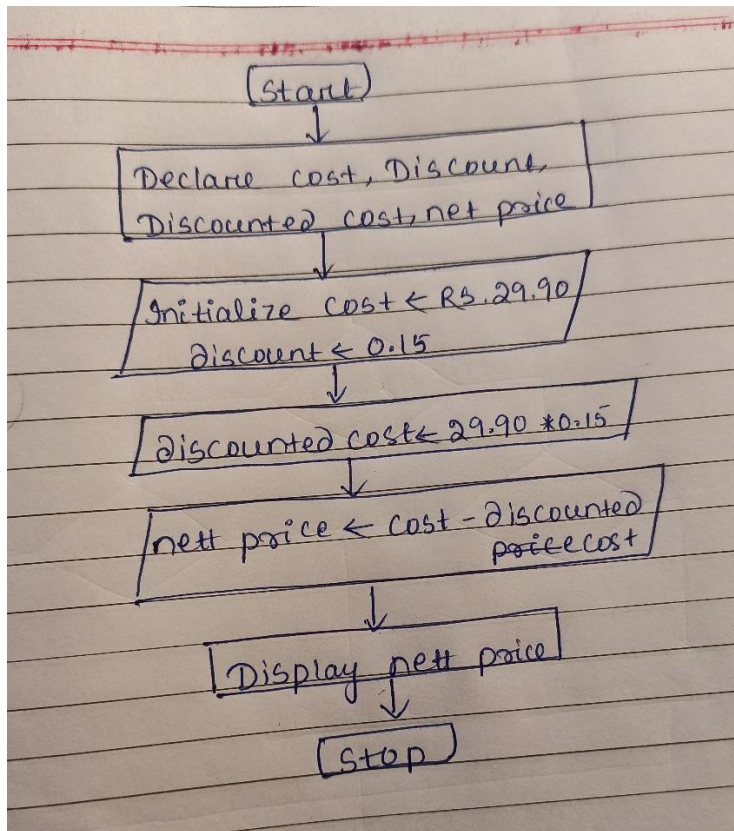 Start
Declare cost, Discount,
Discounted cost, net price
Initialize cost ← RS.29.90
discount ← 0.15
discounted cost ← 29.90 *0.15
nett price ← cost - discounted
price cost
Display nett price
Stop